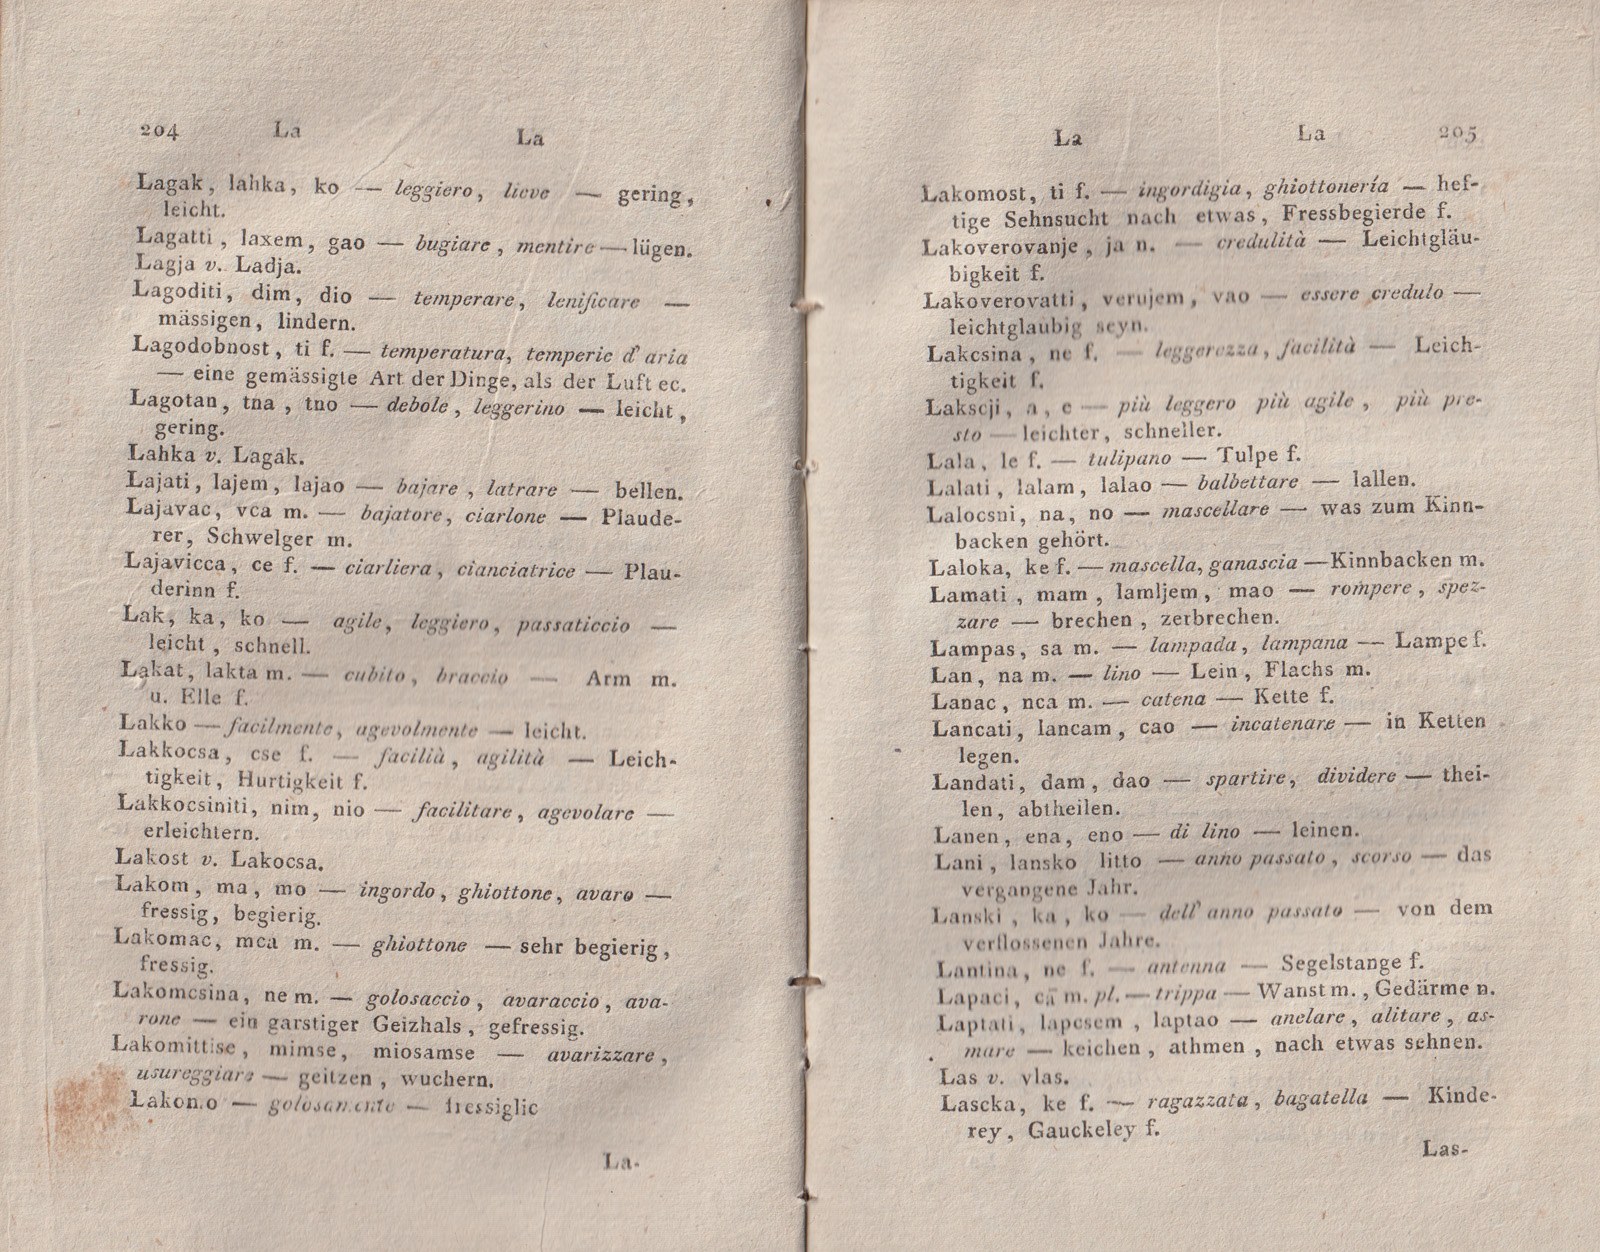 204 La La
Lagak, lahka, ko — leggiero, lieve — gering,
leicht.
Lagatti, laxem, gao — bugiare, mentire — lügen.
Lagja v. Ladja.
Lagoditi, dim, dio — temperare, lenificare —
mässigen, lindern.
Lagodobnost, ti f. — temperatura, temperie d'aria
— eine gemässigte Art der Dinge, als der Luft ec.
Lagotan, tna, tno — debole, leggerino — leicht,
gering.
Lahka v. Lagak.
Lajati, lajem, lajao — bajare, latrare — bellen.
Lajavac, vca m. — bajatore, ciarlone — Plaude-
rer, Schwelger m.
Lajavicca, ce f. — ciarliera, cianciatrice — Plau-
derinn f.
Lak, ka, ko — agile, leggiero, passaticcio —
leicht, schnell.
Lakat, lakta m. — cubito, braccio — Arm m.
u. Elle f.
Lakko — facilmente, agevolmente — leicht.
Lakkocsa, cse f. — facilià, agilità — Leich-
tigkeit, Hurtigkeit f.
Lakkocsiniti, nim, nio — facilitare, agevolare —
erleichtern.
Lakost v. Lakocsa.
Lakom, ma, mo — ingordo, ghiottone, avaro —
fressig, begierig.
Lakomac, mca m. — ghiottone — sehr begierig,
fressig.
Lakomcsina, ne m. — golosaccio, avaraccio, ava-
rone — ein garstiger Geizhals, gefressig.
Lakomittise, mimse, miosamse — avarizzare,
usureggiare — geitzen, wuchern.
Lakomo — golosamente — fressiglic
La-
La La 205
Lakomost, ti f. — ingordigia, ghiottonería — hef-
tige Sehnsucht nach etwas, Fressbegierde f.
Lakoverovanje, ja n. — credulità — Leichtgläu-
bigkeit f.
Lakoverovatti, verujem, vao — essere credulo —
leichtglaubig seyn.
Lakcsina, ne f. — leggerezza, facilità — Leich-
tigkeit f.
Lakscji, a, e — più leggero più agile, più pre-
sto — leichter, schneller.
Lala, le f. — tulipano — Tulpe f.
Lalati, lalam, lalao — balbettare — lallen.
Lalocsni, na, no — mascellare — was zum Kinn-
backen gehört.
Laloka, ke f. — mascella, ganascia — Kinnbacken m.
Lamati, mam, lamljem, mao — rompere, spez-
zare — brechen, zerbrechen.
Lampas, sa m. — lampada, lampana — Lampe f.
Lan, na m. — lino — Lein, Flachs m.
Lanac, nca m. — catena — Kette f.
Lancati, lancam, cao — incatenare — in Ketten
legen.
Landati, dam, dao — spartire, dividere — thei-
len, abtheilen.
Lanen, ena, eno — di lino — leinen.
Lani, lansko litto — anno passato, scorso — das
vergangene Jahr.
Lanski, ka, ko — dell'anno passato — von dem
verflossenen Jahre.
Lantina, ne f. — antenna — Segelstange f.
Lapaci, cā m. pl. — trippa — Wanst m., Gedärme n.
Laptati, lapcsem, laptao — anelare, alitare, as-
mare — keichen, athmen, nach etwas sehnen.
Las v. vlas.
Lascka, ke f. — ragazzata, bagatella — Kinde-
rey, Gauckeley f.
Las-